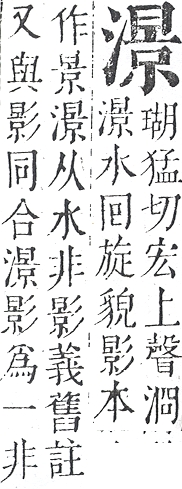 澋
瑚猛切宏上聲
澋水囘旋貌影本
作景澋从水非影義舊註
又與影同合澋影爲一非